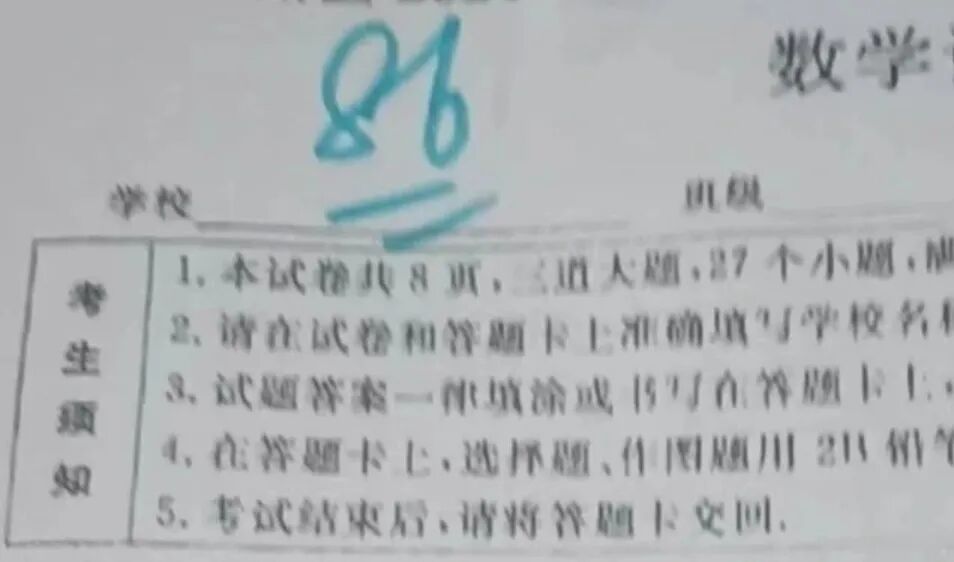 86
数学
学校 班级
考生须知
1. 本试卷共 8 页，三道大题，27 个小题，满
2. 请在试卷和答题卡上准确填写学校名称
3. 试题答案一律填涂或书写在答题卡上，
4. 在答题卡上，选择题、作图题用 2B 铅笔
5. 考试结束后，请将答题卡交回．